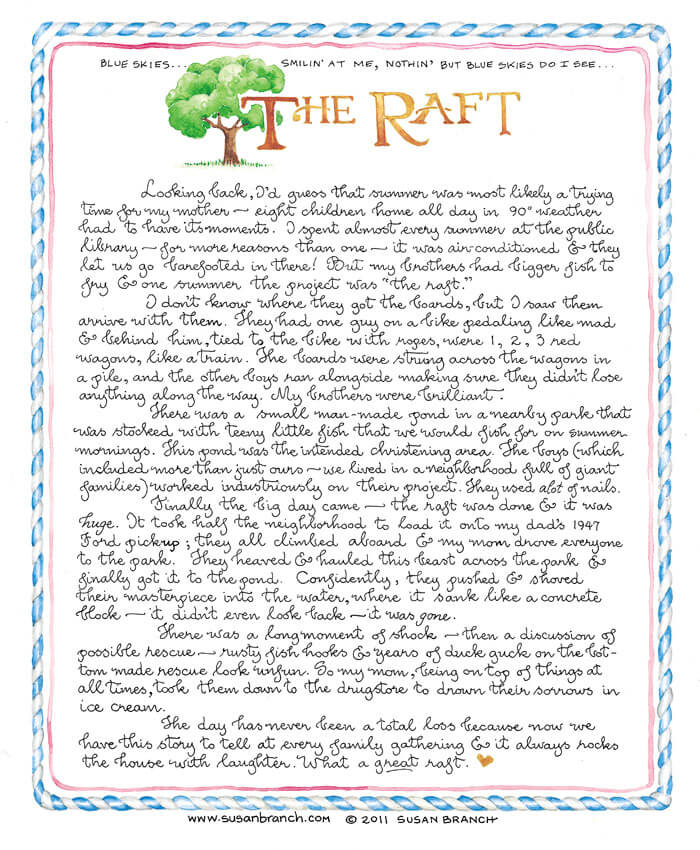 BLUE SKIES... SMILIN' AT ME, NOTHIN' BUT BLUE SKIES DO I SEE...
THE RAFT
Looking back, I'd guess that summer was most likely a trying
time for my mother – eight children home all day in 90° weather
had to have its moments. I spent almost every summer at the public
library – for more reasons than one – it was air-conditioned & they
let us go barefooted in there! But my brothers had bigger fish to
fry & one summer the project was "the raft."
I don't know where they got the boards, but I saw them
arrive with them. They had one guy on a bike pedaling like mad
& behind him, tied to the bike with ropes, were 1, 2, 3 red
wagons, like a train. The boards were strung across the wagons in
a pile, and the other boys ran alongside making sure they didn't lose
anything along the way. My brothers were brilliant.
There was a small man-made pond in a nearby park that
was stocked with teeny little fish that we would fish for on summer
mornings. This pond was the intended christening area. The boys (which
included more than just ours – we lived in a neighborhood full of giant
families) worked industriously on their project. They used a lot of nails.
Finally the big day came – the raft was done & it was
huge. It took half the neighborhood to load it onto my dad's 1947
Ford pickup; they all climbed aboard & my mom drove everyone
to the park. They heaved & hauled this beast across the park &
finally got it to the pond. Confidently, they pushed & shoved
their masterpiece into the water, where it sank like a concrete
block – it didn't even look back – it was gone.
There was a long moment of shock – then a discussion of
possible rescue – rusty fish hooks & years of duck guck on the bot-
tom made rescue look unfun. So my mom, being on top of things at
all times, took them down to the drugstore to drown their sorrows in
ice cream.
The day has never been a total loss because now we
have this story to tell at every family gathering & it always rocks
the house with laughter. What a great raft.
www.susanbranch.com © 2011 SUSAN BRANCH